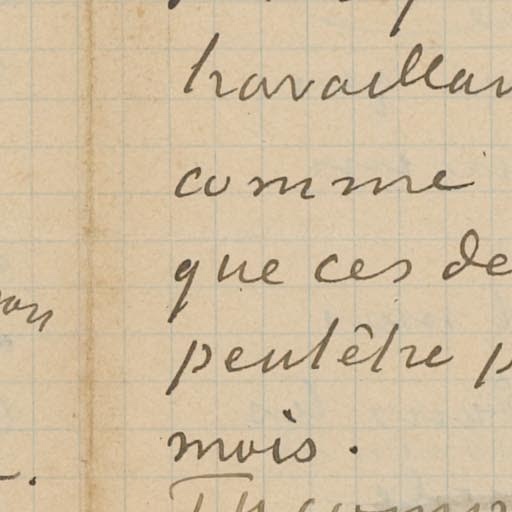 travaillan
comme
que ces de
peutêtre p
mois.
Tu comp